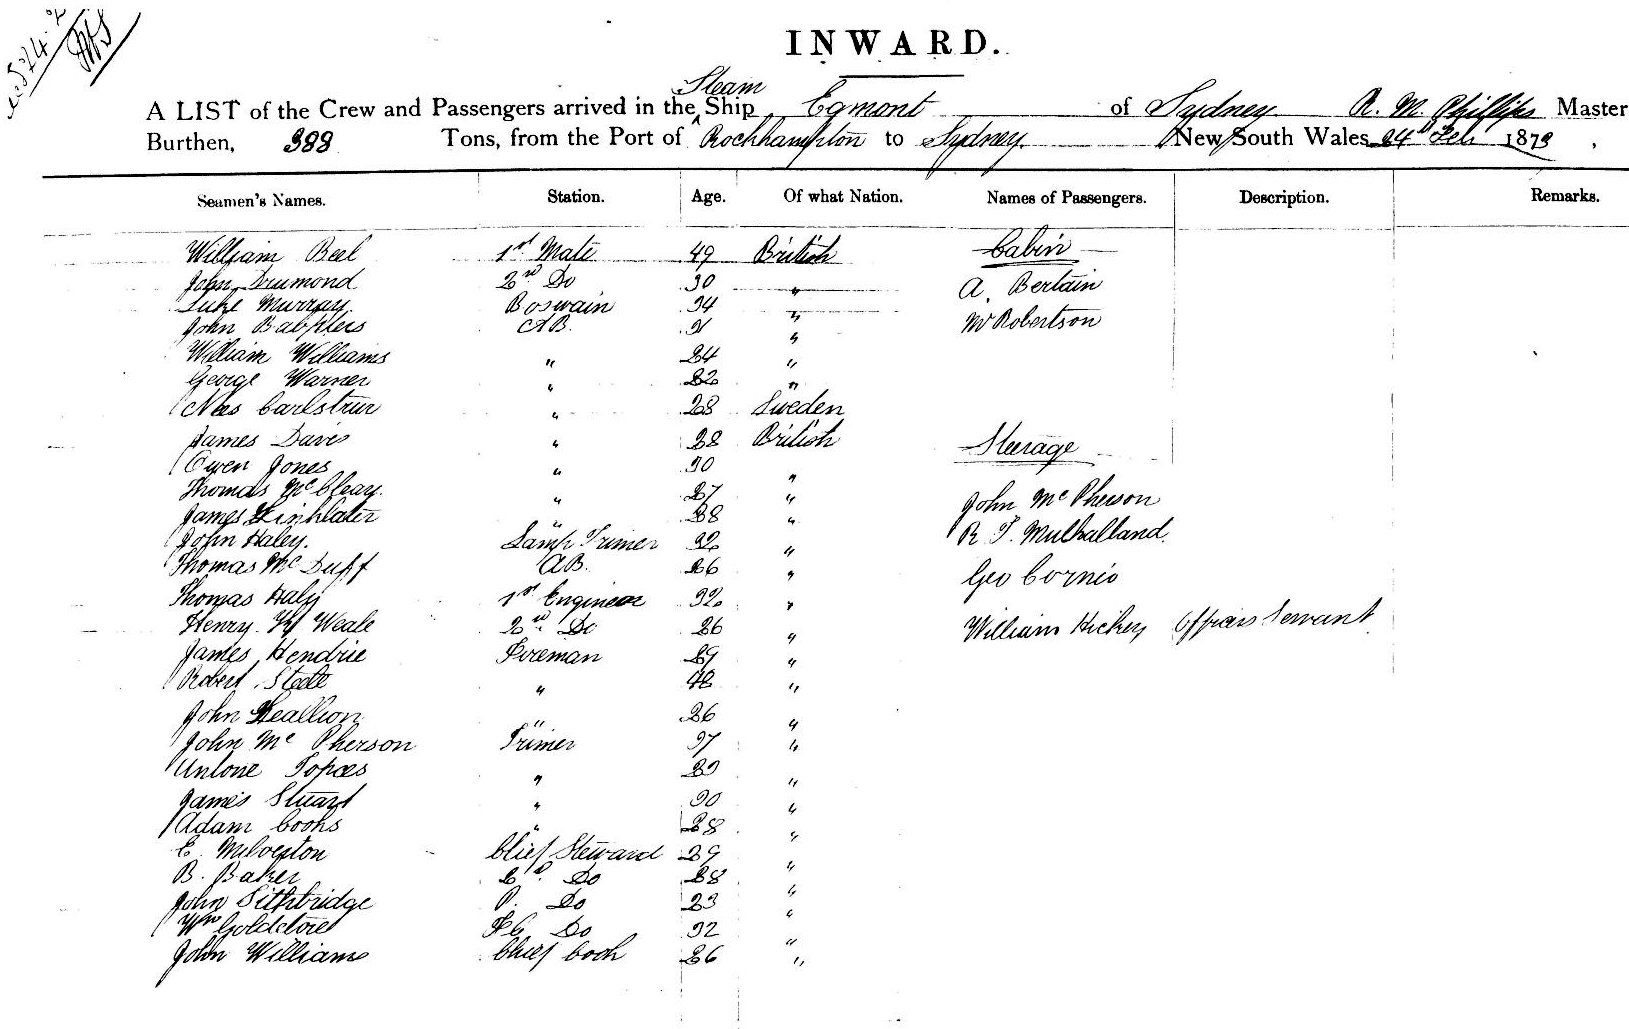 INWARD.
Steam
A LIST of the Crew and Passengers arrived in the ^ Ship Egmont of Sydney R. M. Phillips Master
Burthen, 388 Tons, from the Port of Rockhampton to Sydney New South Wales 24 Feb 1873
Seamen's Names. Station. Age. Of what Nation. Names of Passengers. Description. Remarks.
William Beel 1st Mate 49 British Cabin
John Drumond 2nd Do 30 " A. Bertain
Luke Murray Boswain 34 " Mr Robertson
John AB. "
William Williams " 24 "
George Warner " 22 "
Carlstrur " 28 Sweden
James Davis " 28 British Steerage
Owen Jones " 30 "
Thomas McCleay. " 27 " John McPherson
James Linklater " 28 " R. T. Mulhalland.
John Haley. Lamp Trimer 32 "
Thomas McDuff AB. 26 " Geo Cornio
Thomas Haly 1st Engineer 32 "
Henry Weale 2nd Do 26 " William Hickey Servant
James Hendrie Fireman 29 "
Robert Steele " 42 "
John " 26 "
John McPherson Trimer 37 "
Antone Topaes " "
James Stuart " 30 "
Adam Cooks " 28 "
E. Milverton Chief Steward 29 "
B. Baker 2nd Do 28 "
John Sithbridge P. Do 23 "
Wm Goldstone Do 32 "
John Williams Chief Cook 26 "